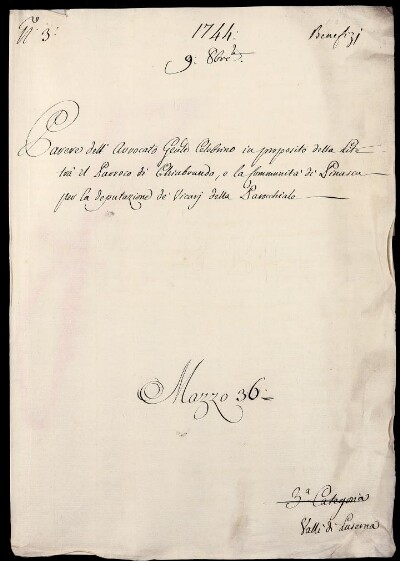 N.º 3:
1744:
Benefizj
9: 8bre.
Parere dell' Avvocato Celebrino in proposito della Lite
trà il Parroco di Chiabrando, e la Communità di Pinasca
per la deputazione de' Vicarj della Parochiale
Mazzo 36
3.ª Categoria
Valli di Luserna